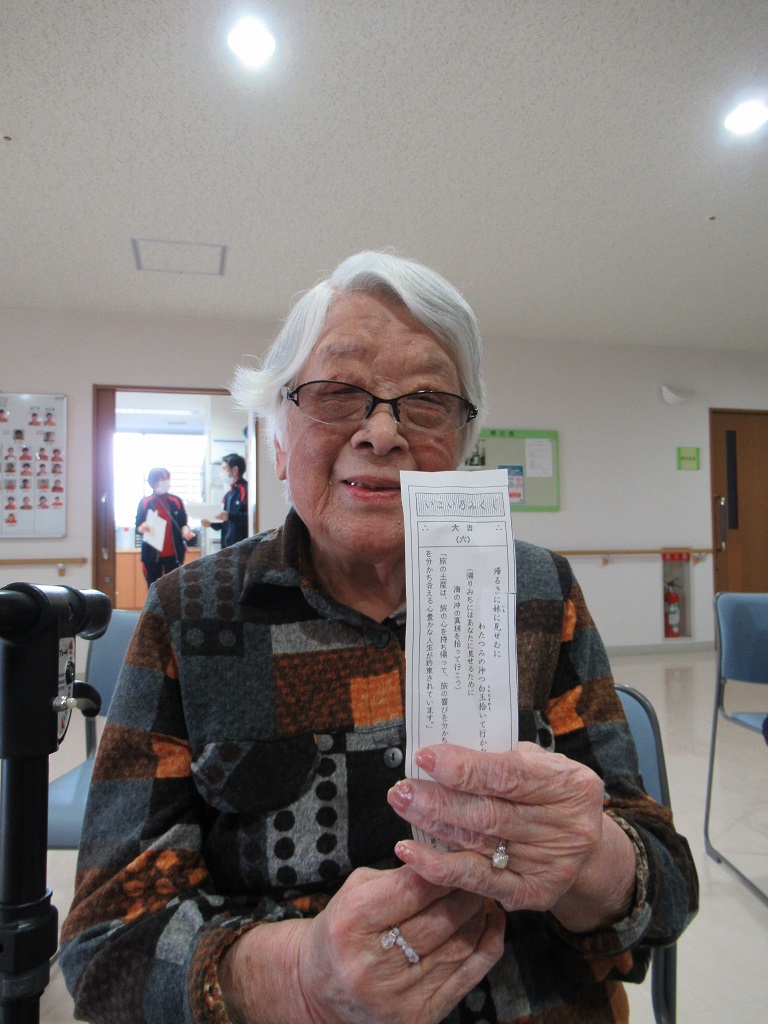 いこいろみくじ
∴ 大吉 ∴
(六)
帰るさに妹に見せむに
わたつみの沖つ白玉拾いて行かな
(帰りみちにはあなたに見せるために
海の沖の真珠を拾って行こう)
「旅の土産は、旅の心を持ち帰って、旅の喜びを分かち
を分かち合える心豊かな人生が約束されています。」